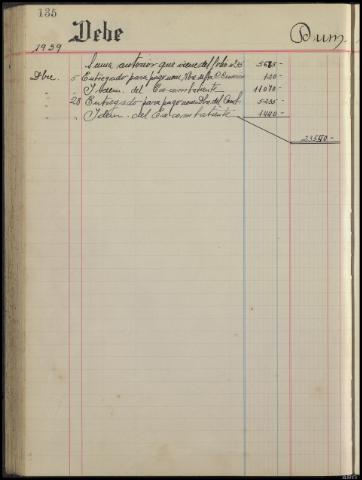 135
Debe
Dum
1939
Suma anterior que viene del folio 126 5675-
Dbre. 5 Entregado para pago 120-
" Idem. del Ex-combatiente 11070-
" 28 Entregado para pago Dbre. del Comb. 5235-
" Idem. del Ex-combatiente 1400-
23500-